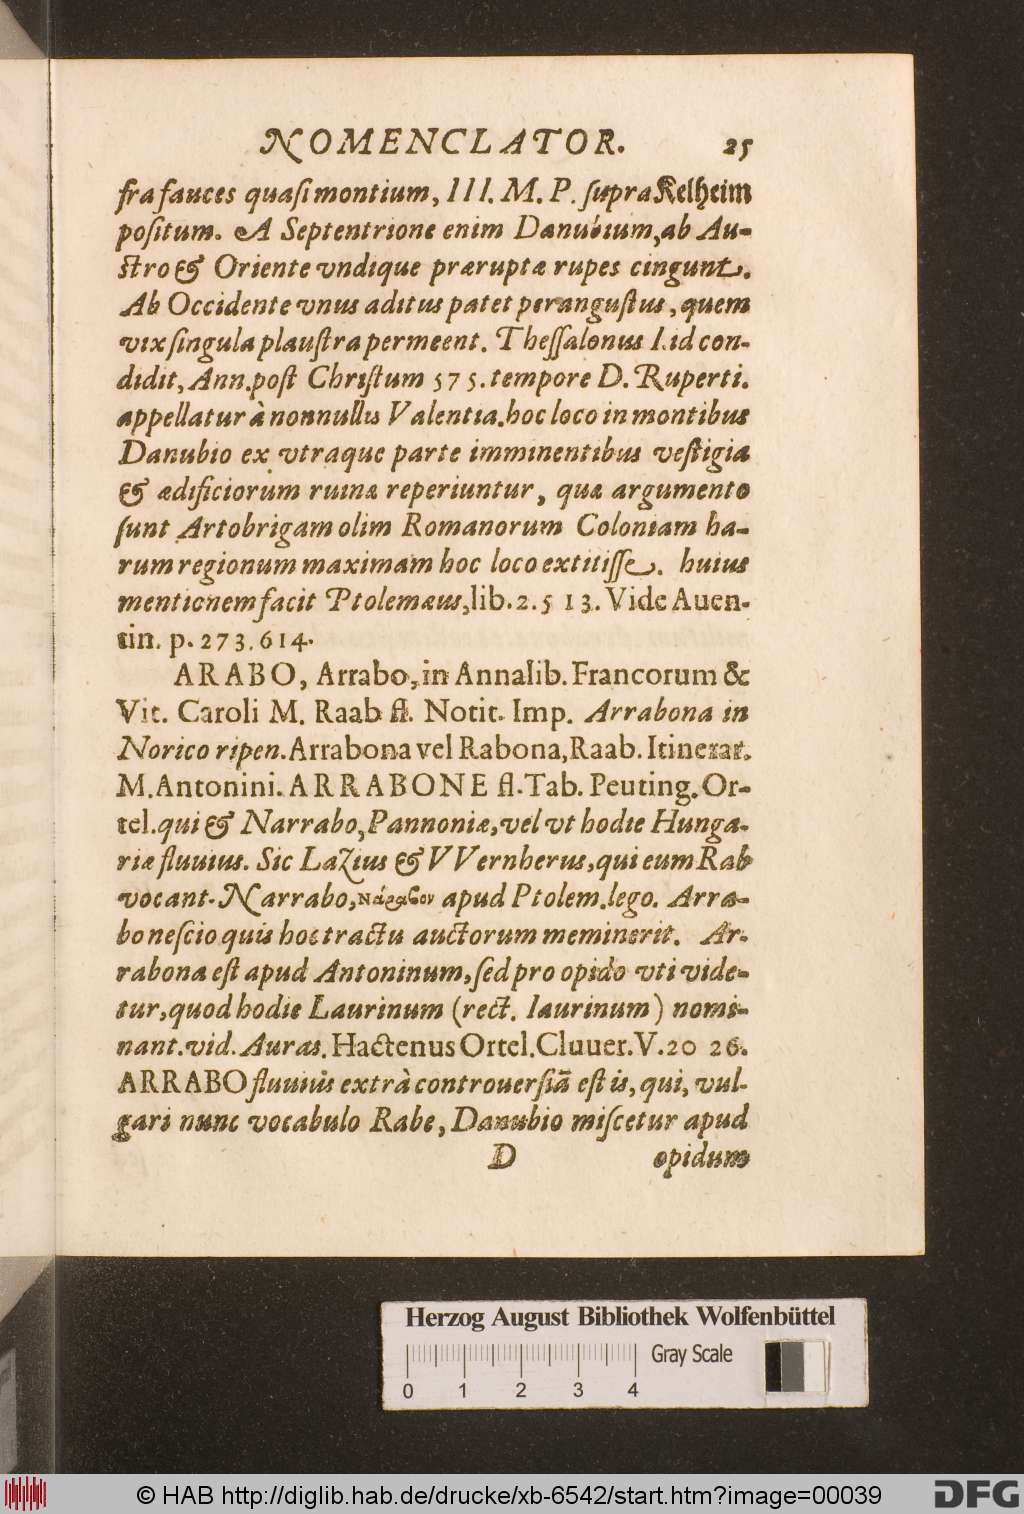 NOMENCLATOR. 25
fra fauces quasi montium, III. M. P. supra Kelheim
positum. A Septentrione enim Danubium, ab Au-
stro & Oriente vndique præruptæ rupes cingunt.
Ab Occidente vnus aditus patet perangustus, quem
vix singula plaustra permeent. Thessalonus I. id con-
didit, Ann. post Christum 575. tempore D. Ruperti.
appellatur à nonnullis Valentia. hoc loco in montibus
Danubio ex vtraque parte imminentibus vestigia
& ædificiorum ruinæ reperiuntur, quæ argumento
sunt Artobrigam olim Romanorum Coloniam ha-
rum regionum maximam hoc loco extitisse. huius
mentionem facit Ptolemæus, lib. 2. 5 13. Vide Auen-
tin. p. 273. 614.
ARABO, Arrabo, in Annalib. Francorum &
Vit. Caroli M. Raab fl. Notit. Imp. Arrabona in
Norico ripen. Arrabona vel Rabona, Raab. Itinerar.
M. Antonini. ARRABONE fl. Tab. Peuting. Or-
tel. qui & Narrabo, Pannoniæ, vel vt hodie Hunga-
riæ fluuius. Sic Lazius & VVernherus, qui eum Rab
vocant. Narrabo, Νάραβον apud Ptolem. lego. Arra-
bo nescio quis hoc tractu auctorum meminerit. Ar-
rabona est apud Antoninum, sed pro opido vti vide-
tur, quod hodie Laurinum (rect. Iaurinum) nomi-
nant. vid. Auras. Hactenus Ortel. Cluuer. V. 20 26.
ARRABO fluuius extrà controuersiã est is, qui, vul-
gari nunc vocabulo Rabe, Danubio miscetur apud
D opidum
Herzog August Bibliothek Wolfenbüttel
Gray Scale
0 1 2 3 4
© HAB http://diglib.hab.de/drucke/xb-6542/start.htm?image=00039
DFG